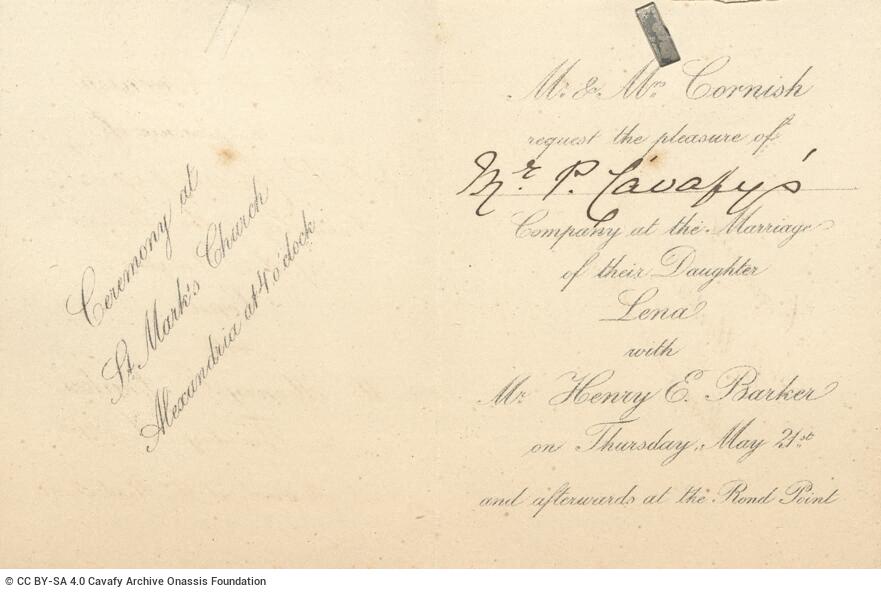 Ceremony at
St Mark's Church
Alexandria at 4 o'clock.
Mr. & Mrs Cornish
request the pleasure of
Mr. P. Cavafy's
Company at the Marriage
of their Daughter
Lena
with
Mr. Henry E. Barker
on Thursday, May 21st
and afterwards at the Rond Point
© CC BY-SA 4.0 Cavafy Archive Onassis Foundation